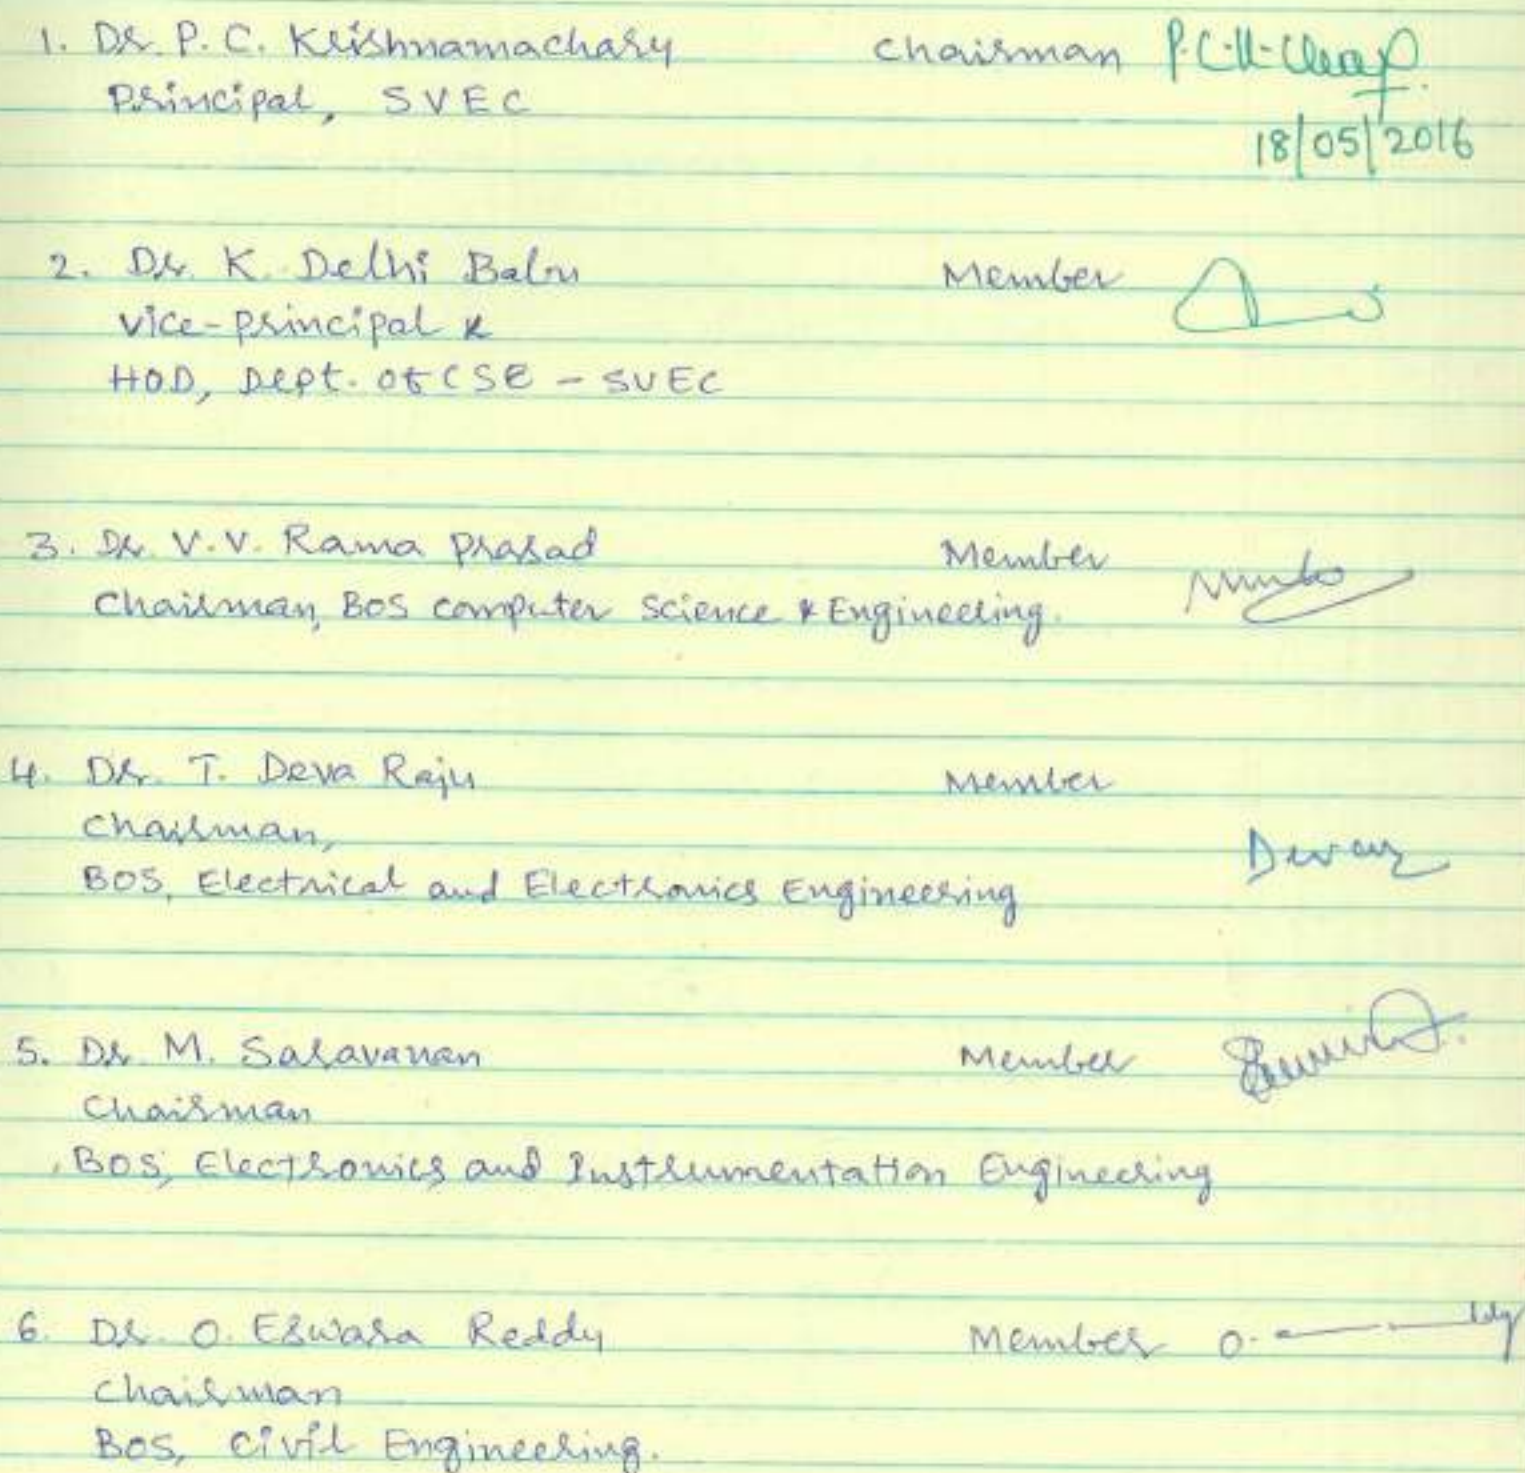 1. Dr. P. C. Krishnamachary Chairman
Principal, SVEC
18/05/2016
2. Dr. K. Delhi Babu Member
Vice-Principal &
HOD, Dept. of CSE - SVEC
3. Dr. V.V. Rama Prasad Member
Chairman, BOS Computer Science & Engineering.
4. Dr. T. Deva Raju Member
Chairman,
BOS, Electrical and Electronics Engineering
5. Dr. M. Saravanan Member
Chairman
BOS, Electronics and Instrumentation Engineering
6. Dr. O. Eswara Reddy Member
Chairman
BOS, Civil Engineering.